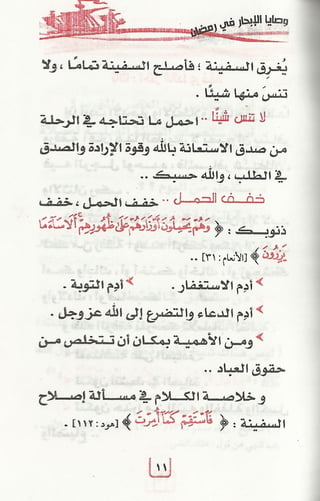 وصايا الإبحار في رمضان
يُغرق السفينة ؛ فأصلح السفينة تمامًا ، ولا
تنسَ منها شيئًا .
لا تنس شيئًا .. احمل ما تحتاجه في الرحلة
من صدق الاستعانة بالله وقوة الإرادة والصدق
في الطلب ، والله حسبك ..
خفف الحمل .. خفف الحمل ، خفف
ذنوبك : ﴿ وَهُمْ يَحْمِلُونَ أَوْزَارَهُمْ عَلَىٰ ظُهُورِهِمْ أَلَا سَاءَ مَا
يَزِرُونَ ﴾ [الأنعام : ٣١] ..
أدِم الاستغفار . أدِم التوبة .
أدِم الدعاء والتضرع إلى الله عز وجل .
ومن الأهمية بمكان أن تتخلص من
حقوق العباد ..
و خلاصة الكلام في مسألة إصلاح
السفينة : ﴿ فَاسْتَقِمْ كَمَا أُمِرْتَ ﴾ [هود : ١١٢] .
١١